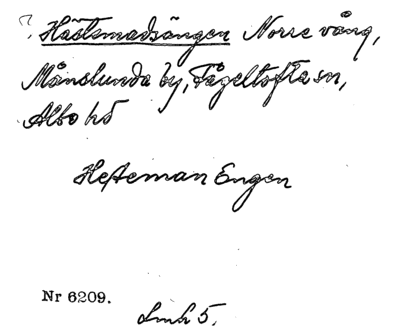 ? Hästmadsängen Norre vång,
Månslunda by, Fågeltofta sn,
Albo hd
Hesteman Engen
Nr 6209.
Lmk 5.